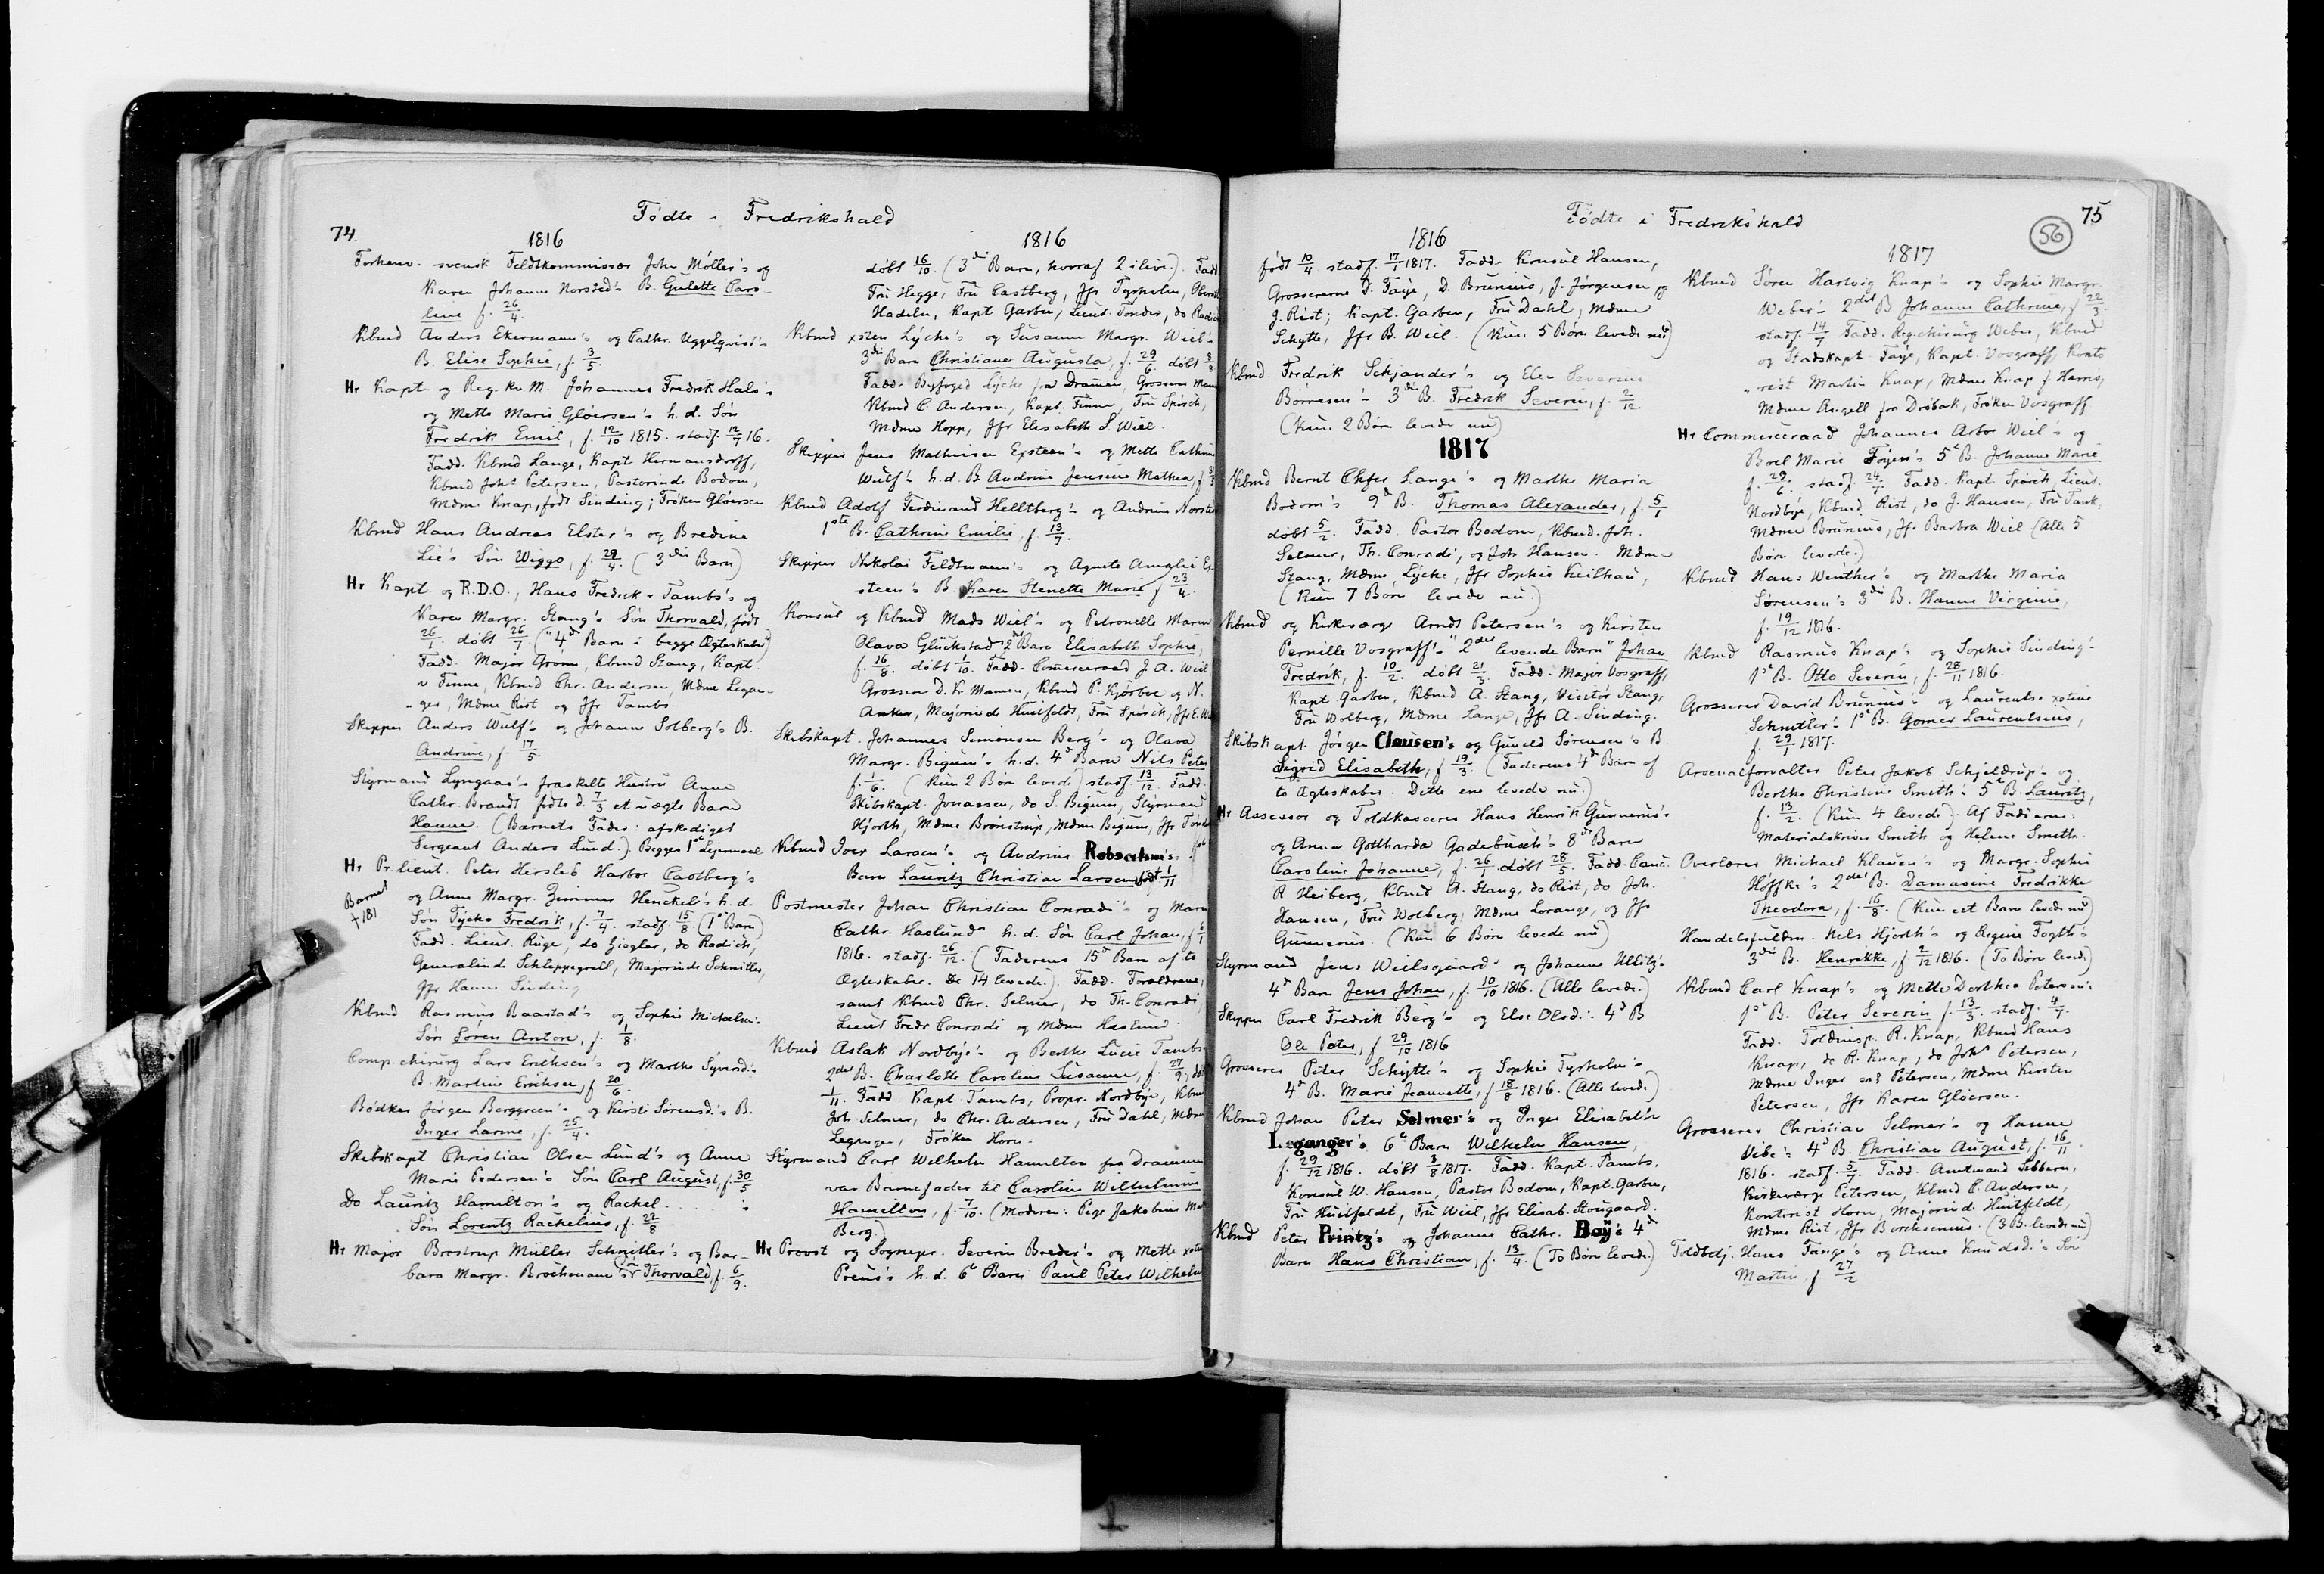 74.
Fødte i Fredrikshald
1816
Forhenv. svensk Feldtkommissær John Møller's og
Karen Johanne Norsted's B. Gulette Caro-
line f. 26/4.
Kbmd Anders Ekermann's og Cathr. Uggelqvist's
B. Elise Sophie, f. 3/5.
Hr Kapt. og Reg. kv. M. Johannes Fredrik Hals's
og Mette Marie Gløersen's h.d. Søn
Fredrik Emil, f. 12/10 1815. stadf. 12/7 16.
Fadd. Kbmd Lange, Kapt Hermansdorff,
Kbmd Johs Petersen, Pastorinde Bodom,
Mdme Knap, født Sinding; Frøken Gløersen
Kbmd Hans Andreas Elster's og Bredine
Lie's Søn Wiggo, f. 29/4. (3die Barn)
Hr Kapt. og R.D.O., Hans Fredrik v Tambs's og
Karen Margr. Stang's Søn Thorvald, født
26/1. døbt 26/7. ("4d Barn i begge Ægteskaber)
Fadd. Major Grom, Kbmd Stang, Kapt.
v Finne, Kbmd Chr. Andersen, Mdme Legan-
ger, Mdme Rist og Jfr Tambs.
Skipper Anders Wulf's og Johanne Solberg's B.
Andrine, f. 17/5.
Styrmand Lyngaas's fraskilte Hustru Anne
Cathr. Brandt fødte d. 7/3 et uægte Barn
Hanne. (Barnets Fader: afskediget
Sergeant Anders Lund.) Begges 1st Lejermaal
Hr Pr.lieut. Peter Hersleb Harboe Castberg's
og Anne Margr. Zimmer Henckel's h.d.
Barnet
† 181
Søn Tycho Fredrik, f. 7/4. stadf. 15/8 (1s Barn)
Fadd. Lieut. Ruge, do Ziegler, do Radich,
Generalinde Schleppegrell, Majorinde Schnitler,
Jfr Hanne Sinding
Kbmd Rasmus Baastad's og Sophie Michelsen's
Søn Søren Anton, f. 1/8.
Comp. chirurg Lars Erichsen's og Marthe Syversd.'s
B. Martine Eriksen, f 20/6.
Bødker Jørgen Berggreen's og Kirsti Sørensd.'s B.
Inger Larine, f. 25/4.
Skibskapt Christian Olsen Lund's og Anne
Marie Pedersen's Søn Carl August, f. 30/5
Do Lauritz Hamilton's og Rachel . . . . . 's
Søn Lorentz Rachelius, f. 22/8
Hr Major Brostrup Müller Schnitler's og Bar-
bara Margr. Brochmann's Søn Thorvald, f. 6/9.
1816
døbt 16/10. (3die Barn, hvoraf 2 ilive). Fadd.
Fru Hegge, Fru Castberg, Jfr Tyrholm,
Hadeln, Kapt Garben, Lieut. Tønder, do
Kbmd xsten Lÿche's og Susanne Margr. Wiel's
3die Barn Christiane Augusta, f. 29/6. døbt
Fadd. Byfoged Lÿche fra Dramen, Grosserer
Kbmd C. Andersen, Kapt. Finne, Fru Spørck,
Mdme Hopp, Jfr Elisabeth S. Wiel.
Skipper Jens Mathiesen Epsteen's og Mette
Wulf's h.d. B. Andrine Jensine Mathea, f
Kbmd Adolf Ferdinand Helltberg's og Andrine
1ste B. Cathrine Emilie, f 13/7.
Skipper Nikolai Feldtmann's og Agnete Amalie
steen's B. Karen Stenette Marie f 23/4.
Konsul og Kbmd Mads Wiel's og Petronelle Maren
Olava Glückstad 2d Barn Elisabeth Sophie,
f. 16/8. døbt 1/10. Fadd. Commerceraad J A. Wiel
Grosserer D. Kr Mamen, Kbmd P. Kjørboe og N.
Anker, Majorinde Huitfeldt, Fru Spørck, Jfr E.
Skibskapt. Johannes Simonsen Berg's og Olava
Margr. Bigum's h.d. 4d Barn Nils Peter
f. 1/6. (Kun 2 Børn leved.) stadf 13/12. Fadd.
Skibskapt. Jonassen, do S. Bigum, Styrmand
Hjorth, Mdme Brønstrup, Mdme Bigum, Jfr
Kbmd Iver Larsen's og Andrine Robsahm's
Barn Lauritz Christian Larsen født 1/11
Postmester Johan Christian Conradi's og
Cathr. Haslund's h.d. Søn Carl Johan, f 6/1
1816. stadf. 26/12. (Faderens 15d Barn af to
Ægteskaber. De 14 levede.). Fadd. Forældrene,
samt Kbmd Chr. Selmer, do Th. Conradi,
Lieut Fredr Conradi og Mdme Haslund.
Kbmd Aslak Nordbÿe's og Berthe Lucie Tambs
2det B. Charlotte Caroline Susanne, f. 27/9,
1/11. Fadd Kapt. Tambs, Propr. Nordbÿe, Kbmd
Joh. Selmer, do Chr. Andersen, Fru Dahl, Mdme
Leganger, Frøken Horn.
Styrmand Carl Wilhelm Hamilton fra Drammen
var Barnefader til Caroline Wilhelmine
Hamilton, f. 7/10. (Moderen: Pige Jakobine
Berg.)
Hr Provst og Sognepr. Severin Breder's og Mette
Preus's h.d. 6d Barn Paul Peter Wilhelm
Fødte i Fredrikshald
75
56
1816
født 10/4. stadf. 17/1 1817. Fadd. Konsul Hansen,
Grossererne D. Faye, D. Brunius, J. Jørgensen og
J. Rist; Kapt. Garben, Fru Dahl, Mdme
Schytte, Jfr B. Wiel. (Kun 5 Børn levede nu)
Kbmd. Fredrik Schjander's og Elen Severine
Børresen's 3die B. Fredrik Severin, f. 2/12.
(Kun 2 Børn levede nu)
1817
Kbmd Bernt Chfer Lange's og Marthe Maria
Bodom's 9d B. Thomas Alexander, f. 5/1
døbt 5/2. Fadd. Pastor Bodom, Kbmd. Joh.
Selmer, Th. Conradi, og Joh Hansen. Mdme
Stang, Mdme Lÿche, Jfr Sophie Keilhau,
(Kun 7 Børn levede nu.)
Kbmd og Kirkeværge Arndt Petersen's og Kirsten
Pernille Vosgraff's "2det levende Barn" Johan
Fredrik, f. 10/2. døbt 21/3. Fadd. Major Vosgraff,
Kapt Garben, Kbmd A. Stang, Visitør Stang,
Fru Wolberg, Mdme Lange, Jfr A. Sinding.
Skibskapt. Jørgen Clausen's og Guneld Sørensen's B
Sigrid Elisabeth, f 19/3. (Faderens 4d Barn af
to Ægteskaber. Dette ene levede nu.)
Hr Assessor og Toldkasserer Hans Henrik Gunnerus's
og Anna Gottharda Gadebusch's 8d Barn
Caroline Johanne, f. 26/1. døbt 28/5. Fadd. Canc.
R Heiberg, Kbmd A. Stang, do Rist, do Joh.
Hansen, Fru Wolberg, Mdme Lorange, og Jfr
Gunnerus. (Kun 6 Børn levede nu)
Styrmand Jens Wielsgaard's og Johanne Ullitz's
4d Barn Jens Johan, f. 10/10 1816. (Alle levede.)
Skipper Carl Fredrik Berg's og Else Olsd.'s 4d B
Ole Peter, f 29/10 1816
Grosserer Peter Schÿtte's og Sophie Tyrholm's
4d B. Marie Jeannette, f 18/8 1816. (Alle levede)
Kbmd Johan Peter Selmer's og Inger Elisabeth
Leganger's 6d Barn Wilhelm Hansen,
f. 29/12 1816. døbt 3/8 1817. Fadd. Kapt. Tambs,
Konsul W. Hansen, Pastor Bodom, Kapt. Garben,
Fru Huitfeldt, Fru Wiel, Jfr Elisab. Stougaard.
Kbmd Peter Printz's og Johanne Cathr. Boÿ's 4d
Barn Hans Christian, f. 13/4. (To Børn levede.)
1817
Kbmd Søren Hartvig Knap's og Sophie Margr.
Weber's 2det B Johanne Cathrine, f 22/3.
stadf. 14/7 Fadd. Reg.chirurg Weber, Kbmd
og Stadskapt. Faye, Kapt. Vosgraff, Konto
rist Martin Knap, Mdme Knap f. Harris,
Mdme Angell fra Drøbak, Frøken Vosgraff
Hr Commerceraad Johannes Arboe Wiel's og
Boel Marie Føyen's 5d B. Johanne Marie
f. 29/6. stadf. 24/7. Fadd. Kapt. Spørck, Lieut.
Nordbÿe, Kbmd. Rist, do J. Hansen, Fru Tank,
Mdme Brunius, Jfr Barbra Wiel (Alle 5
Børn levede.)
Kbmd Hans Winther's og Marthe Maria
Sørensen's 3die B. Hanne Virginie,
f. 19/12 1816.
Kbmd Rasmus Knap's og Sophie Sinding's
1s B. Otto Severin, f. 28/11 1816.
Grosserer David Brunius's og Laurentse xstine
Schnitler's 1s B. Gomer Laurentius,
f. 29/1 1817.
Arsenalforvalter Peter Jakob Schjeldrup's og
Berthe Christine Smith's 5d B. Lauritz,
f. 13/2. (Kun 4 levede). Af Fadderne:
Materialskriver Smith og Helene Smith.
Overlærer Michael Klausen's og Margr. Sophie
Høffke's 2det B. Damasine Fredrikke
Theodora, f. 16/8. (Kun eet Barn levede nu)
Handelsfuldm. Nils Hjorth's og Regine Fogth's
3die B. Henrikke, f 2/12 1816. (To Børn leved.)
Kbmd Carl Knap's og Mette Dorthea Petersen's
1s B. Peter Severin f. 13/3. stadf. 4/7.
Fadd. Toldinsp. R. Knap, Kbmd Hans
Knap, do R. Knap, do Johs Petersen,
Mdme Inger Petersen, Mdme Kirsten
Petersen, Jfr Karen Gløersen.
Grosserer Christian Selmer's og Hanne
Vibe's 4d B. Christian August, f. 16/11.
1816. stadf. 5/7. Fadd. Amtmand Sibbern,
Kirkeværge Petersen, Kbmd C. Andersen,
Kontorist Horn, Majorinde Huitfeldt,
Mdme Rist, Jfr Borchsenius. (3 B. levede nu)
Toldbetj. Hans Tange's og Anne Knudsd.'s Søn
Martin, f 27/2